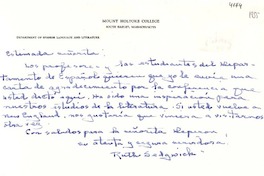 4184
1955
MOUNT HOLYOKE COLLEGE
SOUTH HADLEY, MASSACHUSETTS
DEPARTMENT OF SPANISH LANGUAGE AND LITERATURE
Estimada señorita:
Los profesores y las estudiantes del Depar-
tamento de Español quieren que yo le envíe una
carta de agradecimiento por la conferencia que
usted dictó aquí. Ha sido una inspiración para
nuestros estudios de la literatura. Si usted vuelve a
New England, nos gustaría que viniera a visitarnos
otra vez.
Con saludos para la señorita
su atenta y segura servidora,
Ruth Sedgwick